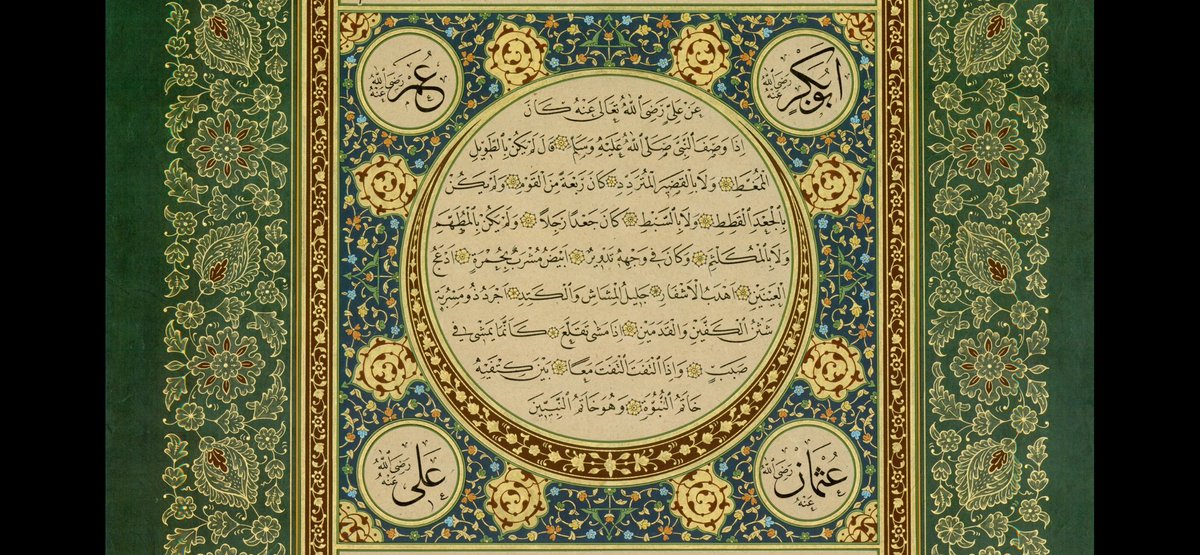 ابوبكر رضى الله عنه
عمر رضى الله عنه
عن على رضى الله تعالى عنه كان
اذا وصف النبى صلى الله عليه وسلم قال لم يكن بالطويل
الممغط ولا بالقصير المتردد كان ربعة من القوم ولم يكن
بالجعد القطط ولا بالسبط كان جعدا رجلا ولم يكن بالمطهم
ولا بالمكلثم وكان فى وجهه تدوير ابيض مشرب بحمرة ادعج
العينين اهدب الاشفار جليل المشاش والكتد اجرد ذو مسربة
شثن الكفين والقدمين اذا مشى تقلع كانما يمشى فى
صبب واذا التفت التفت معا بين كتفيه
خاتم النبوة وهو خاتم النبيين
عثمان رضى الله عنه
على رضى الله عنه